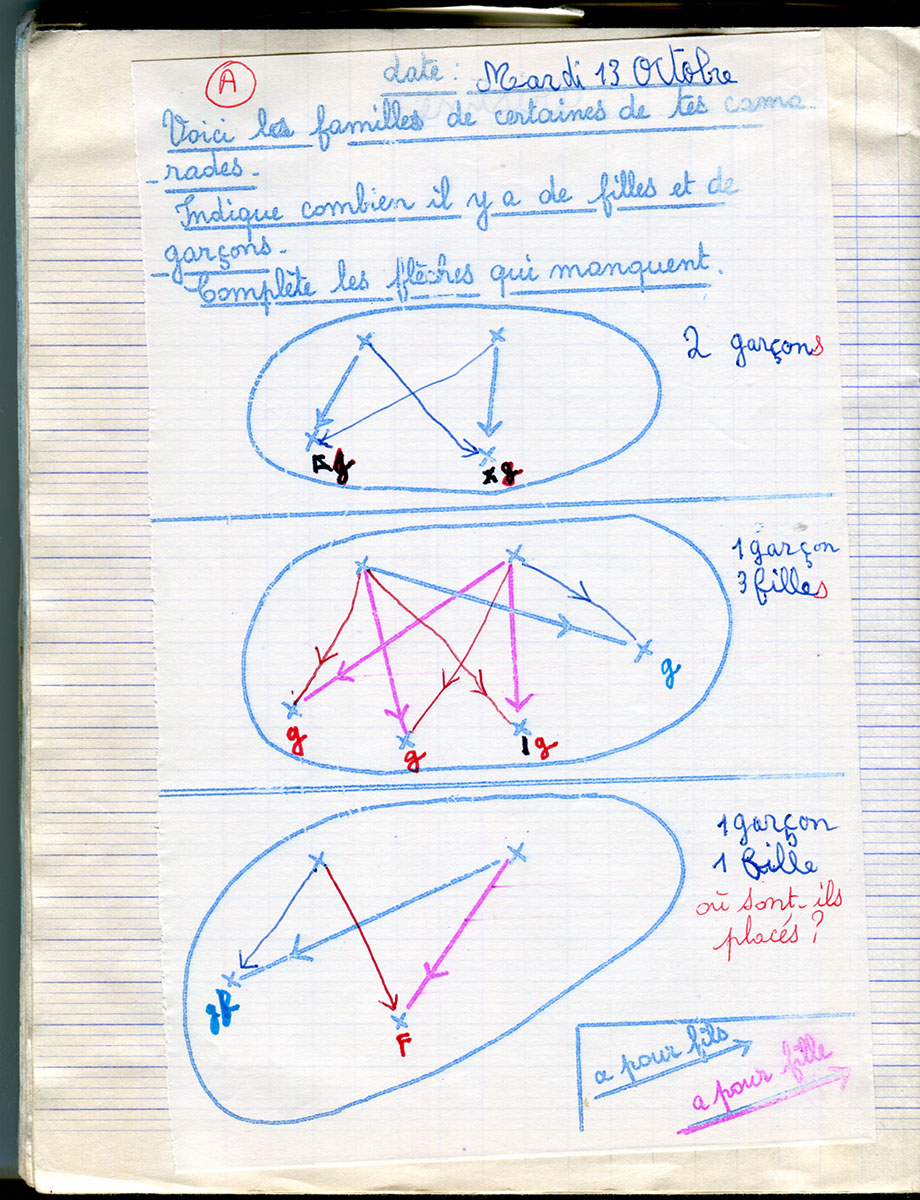 A
date : Mardi 13 Octobre
Voici les familles de certaines de tes cama-
-rades.
Indique combien il y a de filles et de
garçons.
Complète les flèches qui manquent.
2 garçons
g
g
1 garçon
3 filles
g
g
g
g
1 garçon
1 fille
où sont-ils
placés ?
F
a pour fils
a pour fille